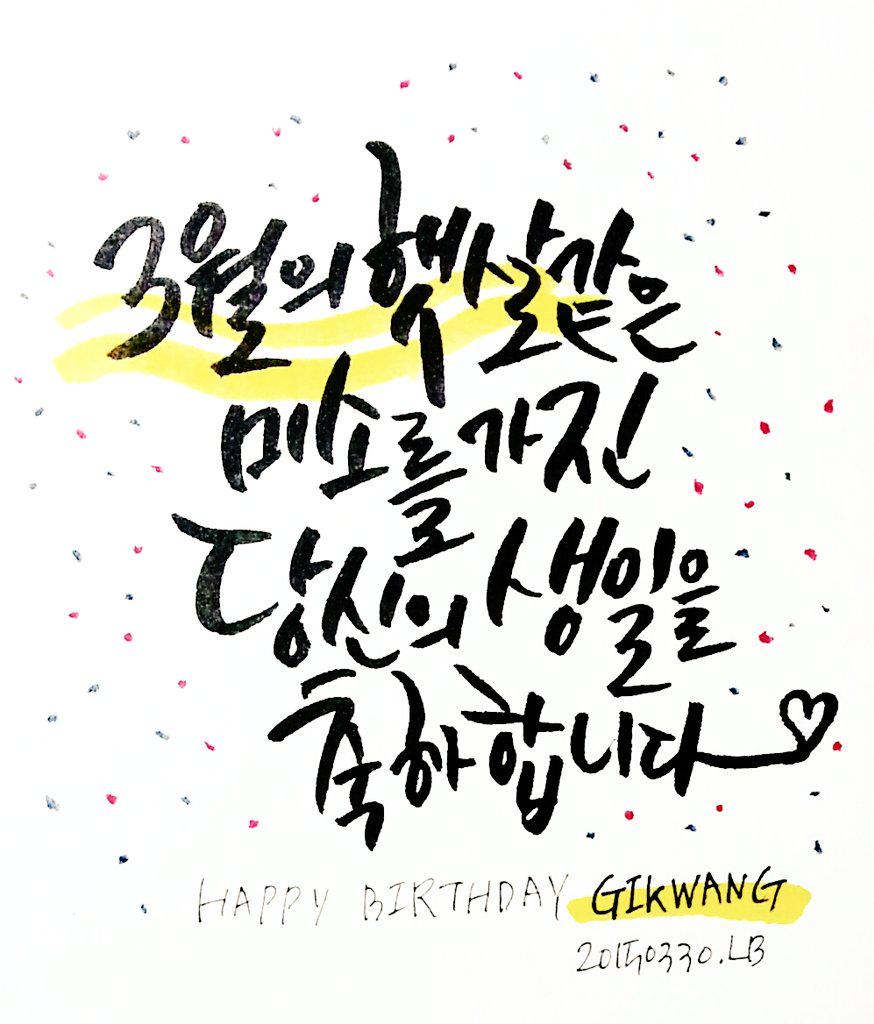 3월의 햇살같은
미소를 가진
당신의 생일을
축하합니다
HAPPY BIRTHDAY GIKWANG
20150330.LB